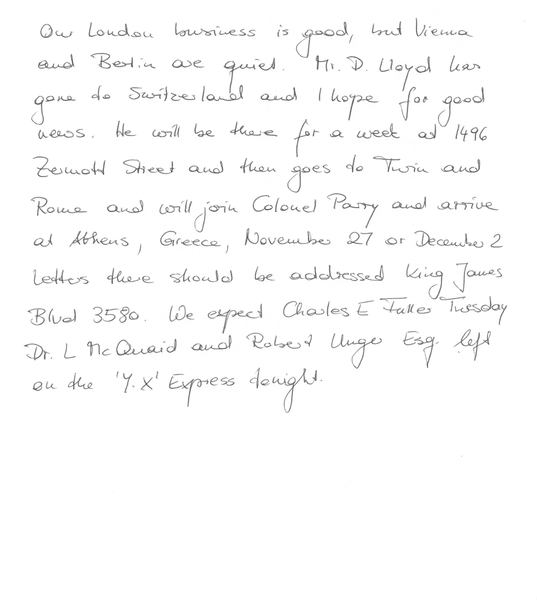 Our London bursiness is good, but Vienna
and Berlin are quiet. Mr. D. Lloyd has
gone to Switzerland and I hope for good
news. He will be there for a week at 1496
Zermott Street and then goes to Turin and
Rome and will join Colonel Parry and arrive
at Athens, Greece, November 27 or December 2
Letters there should be addressed King James
Blvd 3580. We expect Charles E Fuller Tuesday
Dr. L McQuaid and Robert Unger Esq. left
on the 'Y.X' Express tonight.